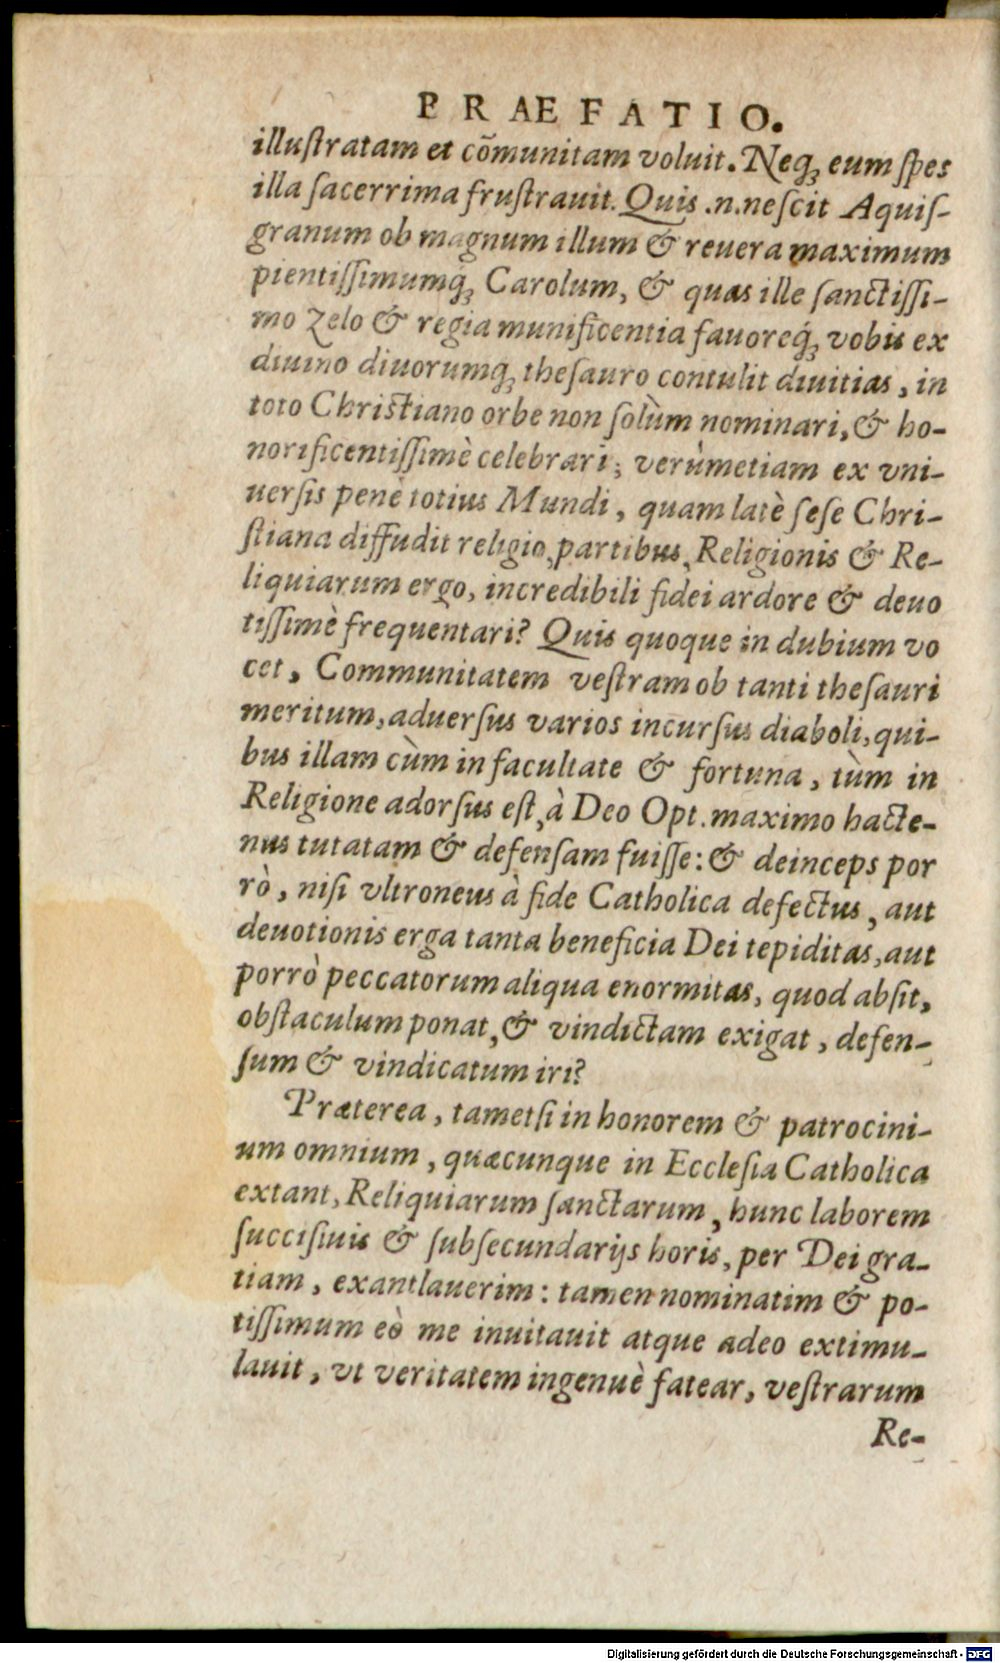 PRAEFATIO.
illuſtratam et cõmunitam voluit. Neq́; eum ſpes
illa ſacerrima fruſtrauit. Quis .n. neſcit Aquiſ-
granum ob magnum illum & reuera maximum
pientiſſimumq́; Carolum, & quas ille ſanctiſſi-
mo zelo & regia munificentia fauoreq́; vobis ex
diuino diuorumq́; theſauro contulit diuitias, in
toto Chriſtiano orbe non ſolùm nominari, & ho-
norificentiſſimè celebrari; verùmetiam ex vni-
uerſis penè totius Mundi, quam latè ſeſe Chri-
ſtiana diffudit religio, partibus, Religionis & Re-
liquiarum ergo, incredibili fidei ardore & deuo
tiſſimè frequentari? Quis quoque in dubium vo
cet, Communitatem veſtram ob tanti theſauri
meritum, aduerſus varios incurſus diaboli, qui-
bus illam cùm in facultate & fortuna, tùm in
Religione adorſus eſt, à Deo Opt. maximo hacte-
nus tutatam & defenſam fuiſſe: & deinceps por
rò, niſi vltroneus à fide Catholica defectus, aut
deuotionis erga tanta beneficia Dei tepiditas, aut
porrò peccatorum aliqua enormitas, quod abſit,
obſtaculum ponat, & vindictam exigat, defen-
ſum & vindicatum iri?
Præterea, tametſi in honorem & patrocini-
um omnium, quæcunque in Eccleſia Catholica
extant, Reliquiarum ſanctarum, hunc laborem
ſucciſiuis & ſubſecundarijs horis, per Dei gra-
tiam, exantlauerim: tamen nominatim & po-
tiſſimum eò me inuitauit atque adeo extimu-
lauit, vt veritatem ingenuè fatear, veſtrarum
Re-
Digitalisierung gefördert durch die Deutsche Forschungsgemeinschaft - DFG